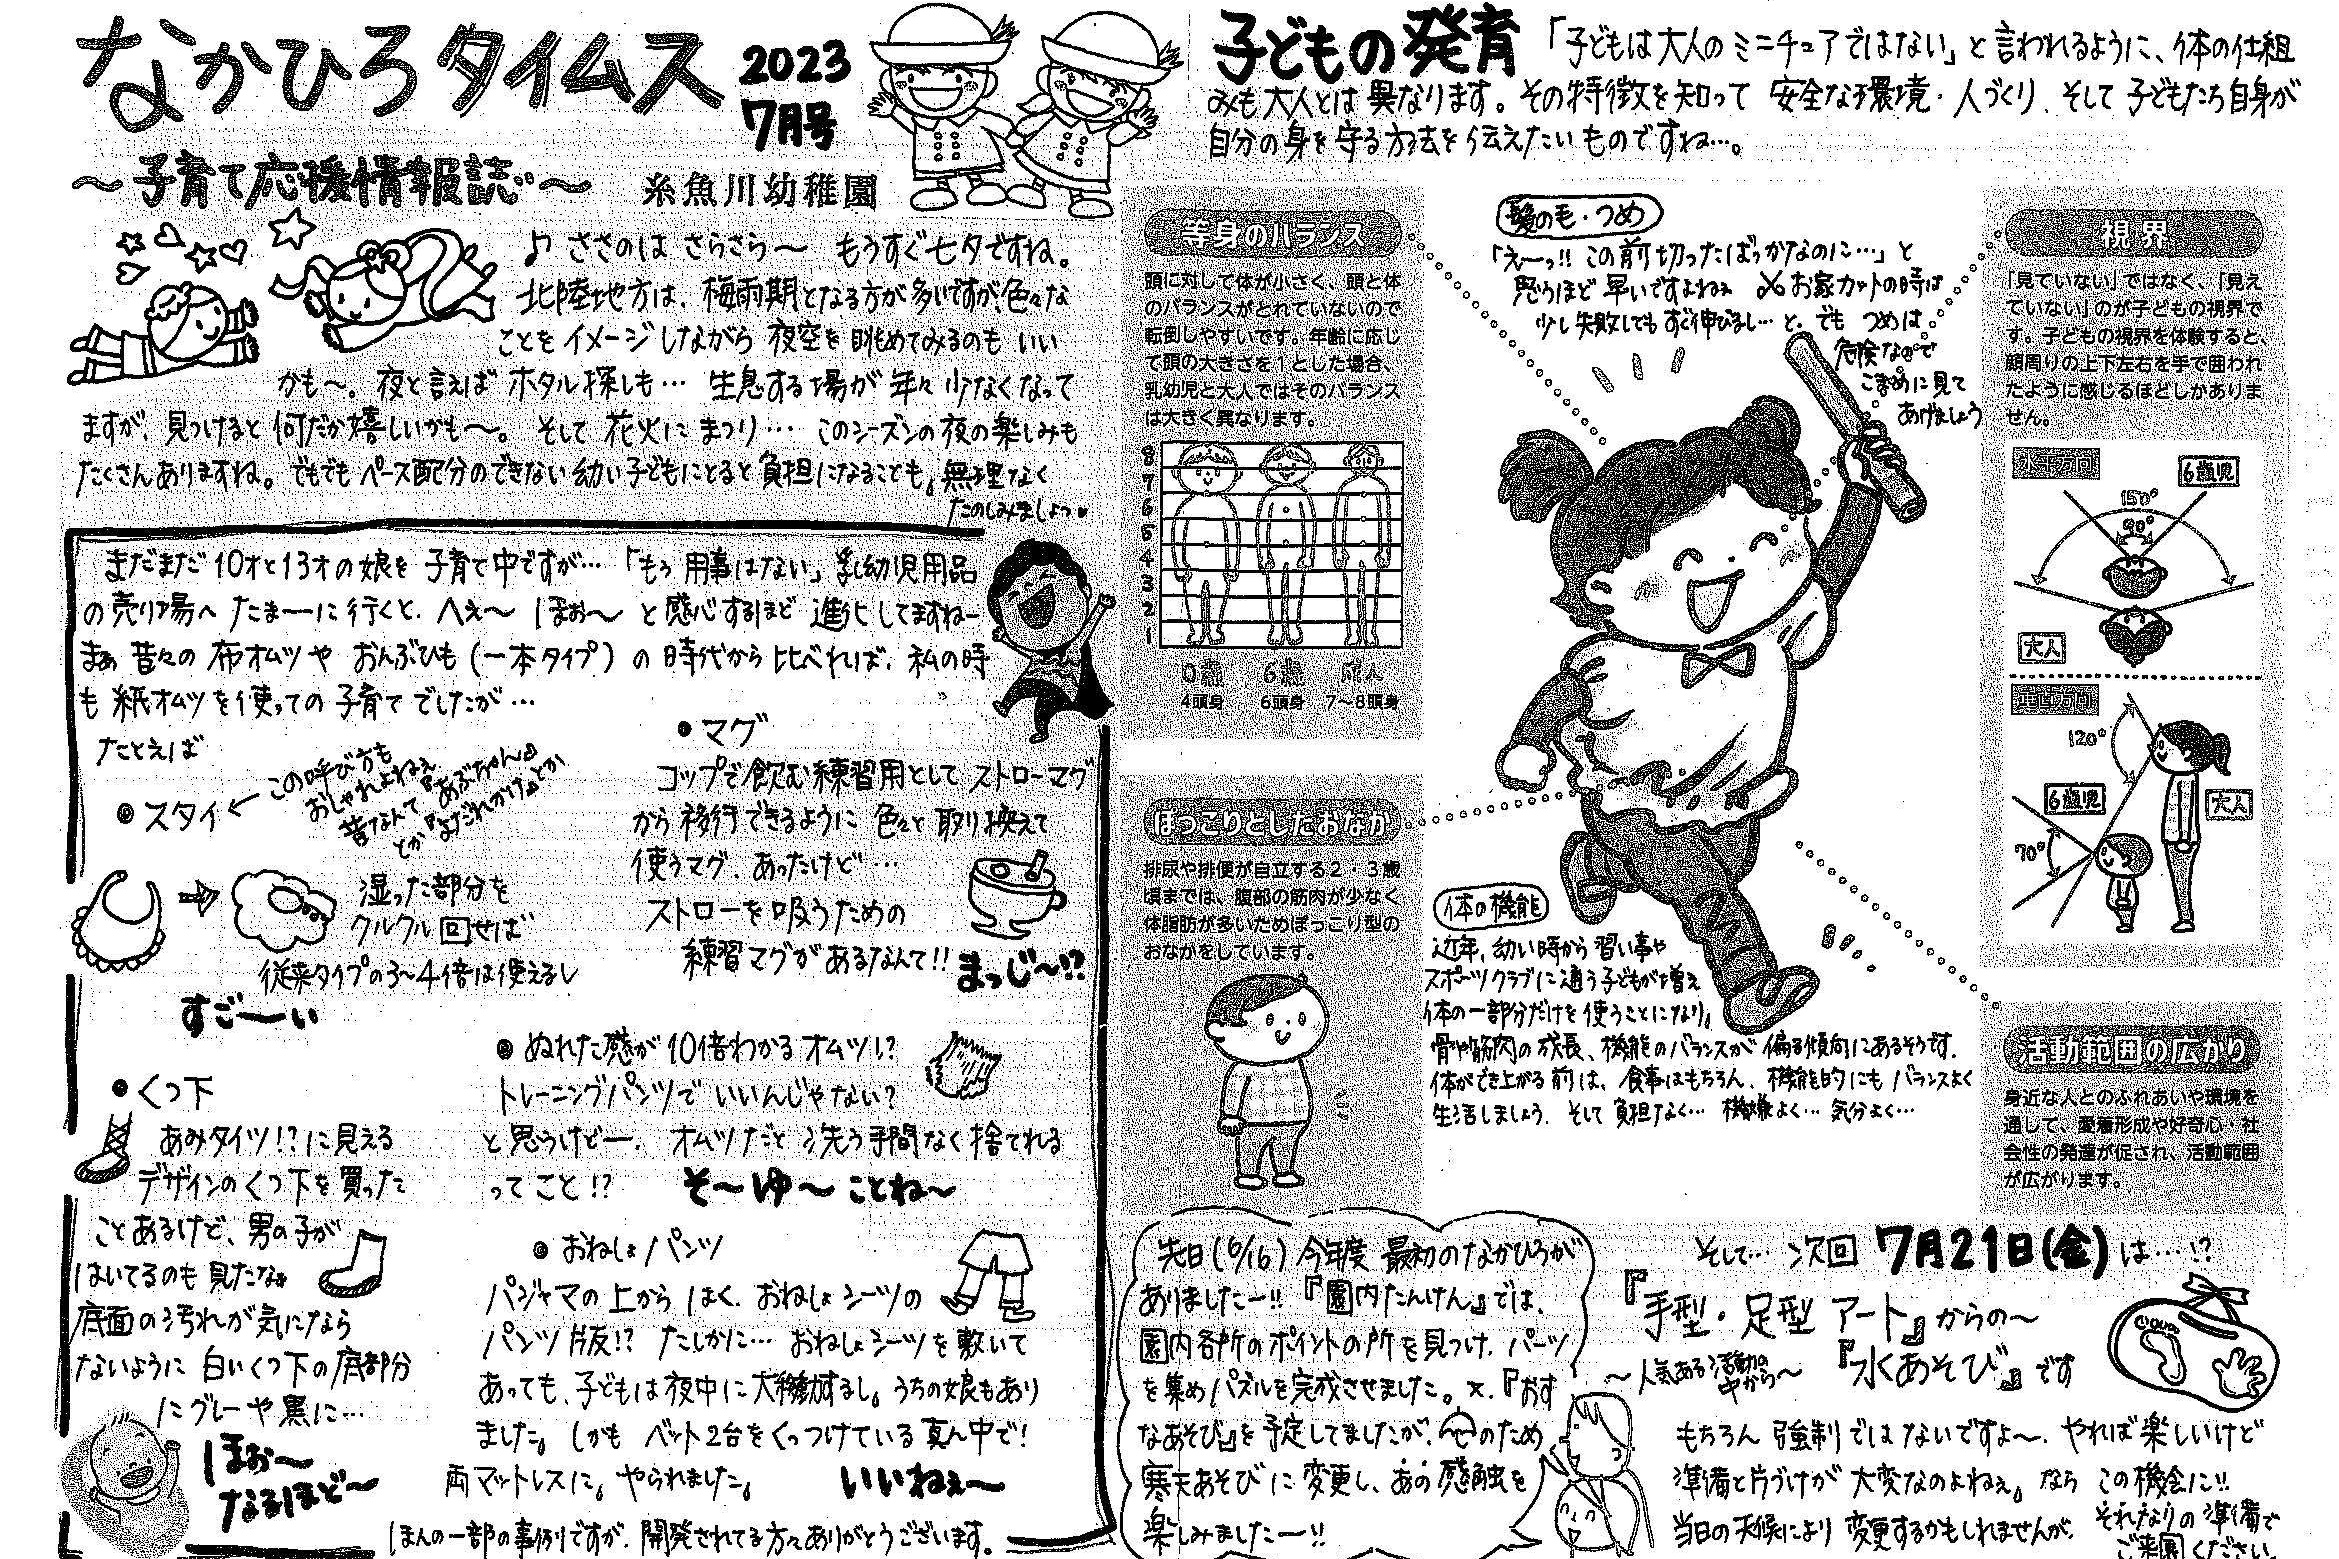 なかひろタイムス
2023
7月号
～子育て応援情報誌～
糸魚川幼稚園
♪ ささのは さらさら～ もうすぐ七夕ですね。
北陸地方は、梅雨期となる方が多いですが、色々な
ことをイメージしながら 夜空を眺めてみるのも いい
かも～。夜と言えば ホタル探しも… 生息する場が 年々 少なくなって
ますが、見つけると 何だか嬉しいかも～。そして 花火に まつり… このシーズンの夜の楽しみも
たくさんありますね。でもでも ペース配分のできない幼い子どもにとると 負担になることも。無理なく
たのしみましょっ。
まだまだ 10才と13才の娘を 子育て中ですが…「もう 用事はない」乳幼児用品
の売り場へ たまーに行くと、へぇ～ ほぉ～ と 感心するほど 進化してますねー
まぁ 昔々の 布オムツや おんぶひも(一本タイプ)の 時代から 比べれば、私の時
も 紙オムツを使っての 子育て でしたが…
たとえば
●スタイ ← この呼び方も
おしゃれよねぇ
昔なんて『あぶちゃん』
とか『よだれかけ』とか
湿った部分を
クルクル回せば
従来タイプの3～4倍は使えるし
すご～い
●マグ
コップで飲む練習用として ストローマグ
から 移行できるように 色々と 取り換えて
使うマグ、あったけど…
ストローを吸うための
練習マグがあるなんて!!
まっじ～!?
●くつ下
あみタイツ!?に見える
デザインのくつ下を買った
ことあるけど、男の子が
はいてるのも 見たなぁ
底面の汚れが気になら
ないように 白いくつ下の底部分
にグレーや黒に…
ほぉ～
なるほど～
●ぬれた感が10倍わかるオムツ!?
トレーニングパンツで いいんじゃない?
と思うけどー、オムツだと 洗う手間なく捨てれる
ってこと!?
そ～ゆ～ことね～
●おねしょパンツ
パジャマの上から はく、おねしょシーツの
パンツ版!? たしかに… おねしょシーツを敷いて
あっても、子どもは夜中に大移動するし。うちの娘もあり
ました。しかも ベット2台をくっつけている真ん中で!
両マットレスに。やられました。
いいねぇ～
ほんの一部の事例ですが、開発されてる方々ありがとうございます。
子どもの発育
「子どもは大人のミニチュアではない」と言われるように、体の仕組
みも大人とは 異なります。その特徴を知って 安全な環境・人づくり、そして 子どもたち自身が
自分の身を守る方法を伝えたいものですね…。
等身のバランス
頭に対して体が小さく、頭と体
のバランスがとれていないので
転倒しやすいです。年齢に応じ
て頭の大きさを1とした場合、
乳幼児と大人ではそのバランス
は大きく異なります。
8
7
6
5
4
3
2
1
0歳 6歳 成人
4頭身 6頭身 7～8頭身
ぽっこりとしたおなか
排尿や排便が自立する2・3歳
頃までは、腹部の筋肉が少なく
体脂肪が多いためぽっこり型の
おなかをしています。
髪の毛・つめ
「えーっ!! この前切ったばっかなのに…」と
思うほど 早いですよねぇ お家カットの時は
少し失敗してもすぐ伸びるし…と。でも つめは
危険なので
こまめに見て
あげましょう
体の機能
近年、幼い時から 習い事や
スポーツクラブに通う子どもが増え
体の一部分だけを使うことになり。
骨や筋肉の成長、機能のバランスが 偏る傾向にあるそうです。
体ができ上がる前は、食事はもちろん、機能的にもバランスよく
生活しましょう。そして 負担なく… 機嫌よく… 気分よく…
視界
「見ていない」ではなく、「見え
ていない」のが子どもの視界で
す。子どもの視界を体験すると、
顔周りの上下左右を手で囲われ
たように感じるほどしかありま
せん。
水平方向
6歳児
150°
90°
大人
垂直方向
120°
6歳児
大人
70°
活動範囲の広がり
身近な人とのふれあいや環境を
通して、愛着形成や好奇心・社
会性の発達が促され、活動範囲
が広がります。
先日(6/16)今年度 最初のなかひろが
ありましたー!!『園内たんけん』では、
園内各所のポイントの所を見つけ、パーツ
を集めパズルを完成させました。又、『おす
なあそび』を予定してましたが、のため
寒天あそびに変更し、あの感触を
楽しみましたー!!
そして… 次回 7月21日(金)は…!?
『手型・足型 アート』からの～
～人気ある活動の
中から～
『水あそび』です
もちろん 強制ではないですよ～。やれば楽しいけど
準備と片づけが 大変なのよねぇ。なら この機会に!!
当日の天候により 変更するかもしれませんが、それなりの準備で
ご来園ください。